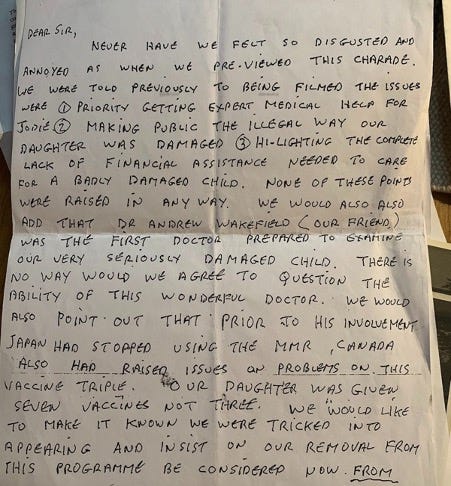 DEAR SIR,
NEVER HAVE WE FELT SO DISGUSTED AND
ANNOYED AS WHEN WE PRE-VIEWED THIS CHARADE.
WE WERE TOLD PREVIOUSLY TO BEING FILMED THE ISSUES
WERE ① PRIORITY GETTING EXPERT MEDICAL HELP FOR
JODIE ② MAKING PUBLIC THE ILLEGAL WAY OUR
DAUGHTER WAS DAMAGED ③ HI-LIGHTING THE COMPLETE
LACK OF FINANCIAL ASSISTANCE NEEDED TO CARE
FOR A BADLY DAMAGED CHILD. NONE OF THESE POINTS
WERE RAISED IN ANY WAY. WE WOULD ALSO ALSO
ADD THAT DR ANDREW WAKEFIELD (OUR FRIEND)
WAS THE FIRST DOCTOR PREPARED TO EXAMINE
OUR VERY SERIOUSLY DAMAGED CHILD. THERE IS
NO WAY WOULD WE AGREE TO QUESTION THE
ABILITY OF THIS WONDERFUL DOCTOR. WE WOULD
ALSO POINT OUT THAT PRIOR TO HIS INVOLVEMENT
JAPAN HAD STOPPED USING THE MMR, CANADA
ALSO HAD RAISED ISSUES ON PROBLEMS ON THIS
VACCINE TRIPLE. OUR DAUGHTER WAS GIVEN
SEVEN VACCINES NOT THREE. WE WOULD LIKE
TO MAKE IT KNOWN WE WERE TRICKED INTO
APPEARING AND INSIST ON OUR REMOVAL FROM
THIS PROGRAMME BE CONSIDERED NOW. FROM